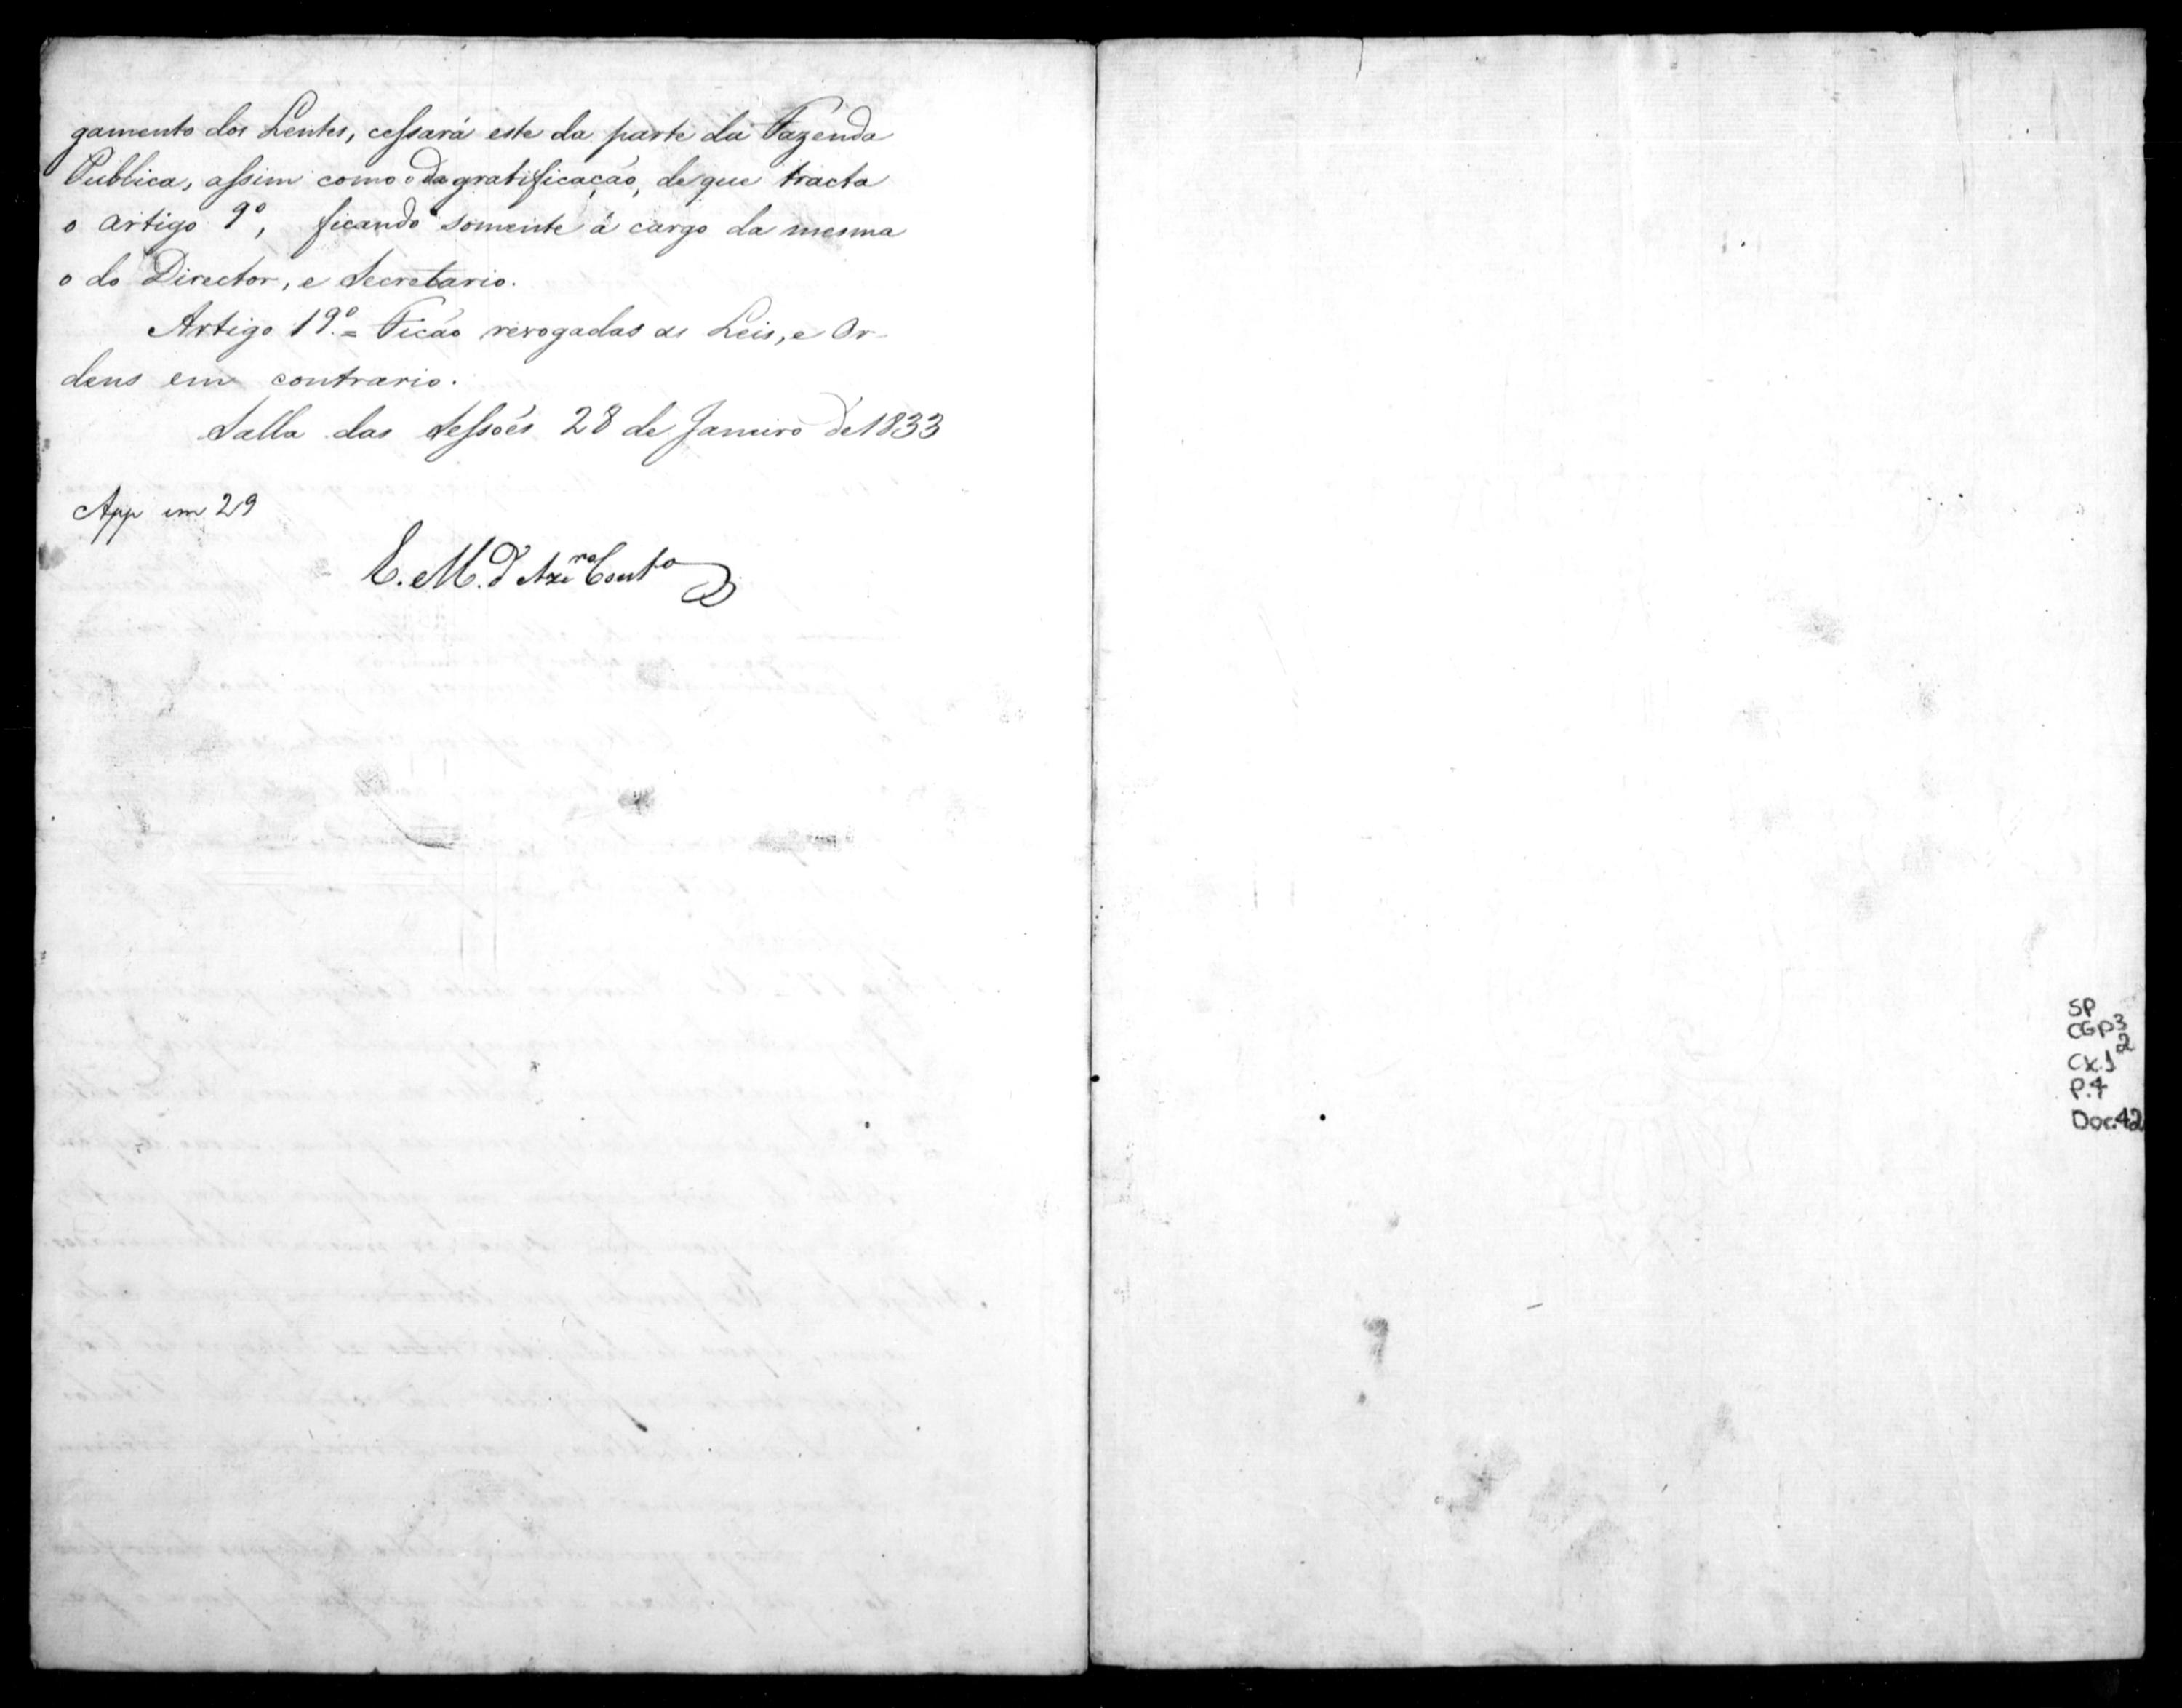 gamento dos Lentes, cessará este da parte da Fazenda
Publica, assim como o da gratificação, de que tracta
o artigo 9º, ficando somente á cargo da mesma
o do Director, e Secretario.
Artigo 19º = Ficão revogadas as Leis, e Or-
dens em contrario.
Salla das Sessões 28 de Janeiro de 1833
App em 29
E. M. d'Azº Couto
SP
CGP3
Cx.1 2
P.4
Doc.42